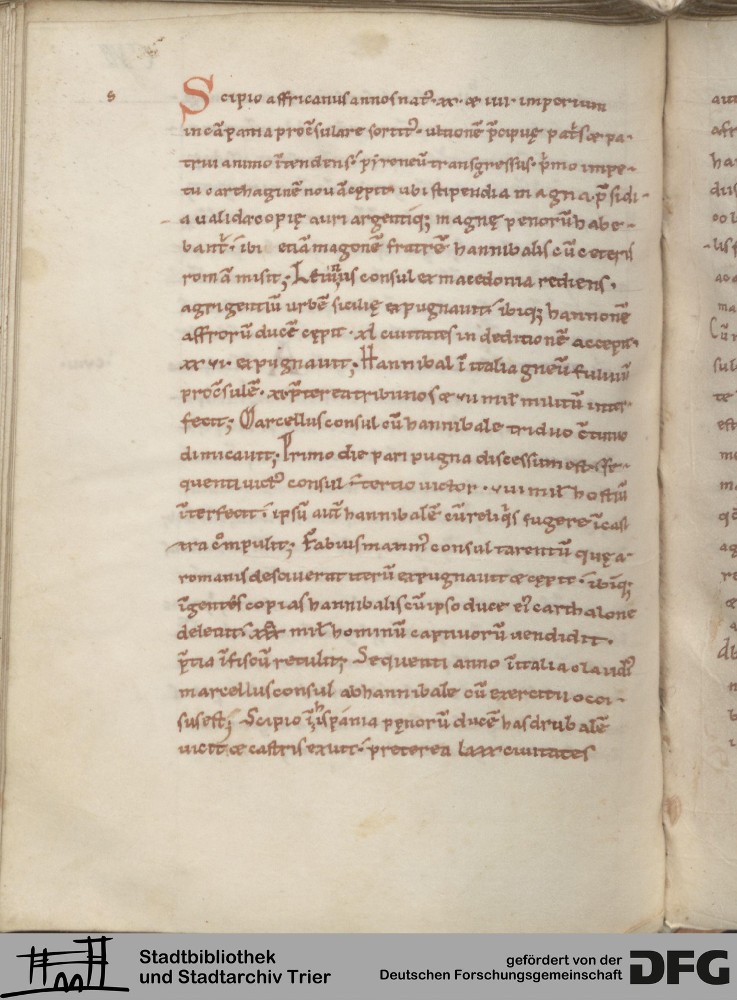 s
Scipio affricanus annos nat᷒ · xx · & iiii · imperium
in cāpania procōsulare sortit᷒ · ultionē p̄cipuę pat̄s & pa-
trui animo ītendens · pyreneū transgressus · p̄mo impe-
tu carthaginē nouā cępit · ubi stipendia magna · p̄sidi-
a ualida & copię auri argentiq; magnę penorū habe-
bant᷒ · ibi etiā magonē fratrē hannibalis cū ceteris
romā misit; Leuinus consul e macedonia rediens ·
agrigentiū urbē sicilię expugnauit · ibiq; hannonē
affrorū ducē cępit · xl ciuitates in deditionē accepit ·
xxvi · expugnauit; Hannibal ī italia gneū fuluiū
procōsulē · xi p̄terea tribunos & vii mil̄ militū inter-
fecit; Marcellus consul cū hannibale triduo cōtinuo
dimicauit; Primo die pari pugna discessum est · se-
quenti uict᷒ consul · tertio uictor · viii mil̄ hostiū
īterfecit · ipsū aut̄ hannibalē cū reliq̄s fugere ī cas-
tra cōmpulit; Fabius maxim᷒ consul tarentū quę a
romanis desciuerat iterū expugnauit & cępit · ibiq;
īgentes copias hannibalis cū ipso duce ei᷒ carthalone
deleuit · xxx mil̄ hominū captiuorū uendidit ·
p̄tia ī fiscū retulit; Sequenti anno ī italia claudi᷒
marcellus consul ab hannibale cū exercitu occi-
sus est; Scipio ī hispania pęnorū ducē hasdrubalē
uicit & castris exuit · preterea lxxx ciuitates
Stadtbibliothek
und Stadtarchiv Trier
gefördert von der
Deutschen Forschungsgemeinschaft
DFG